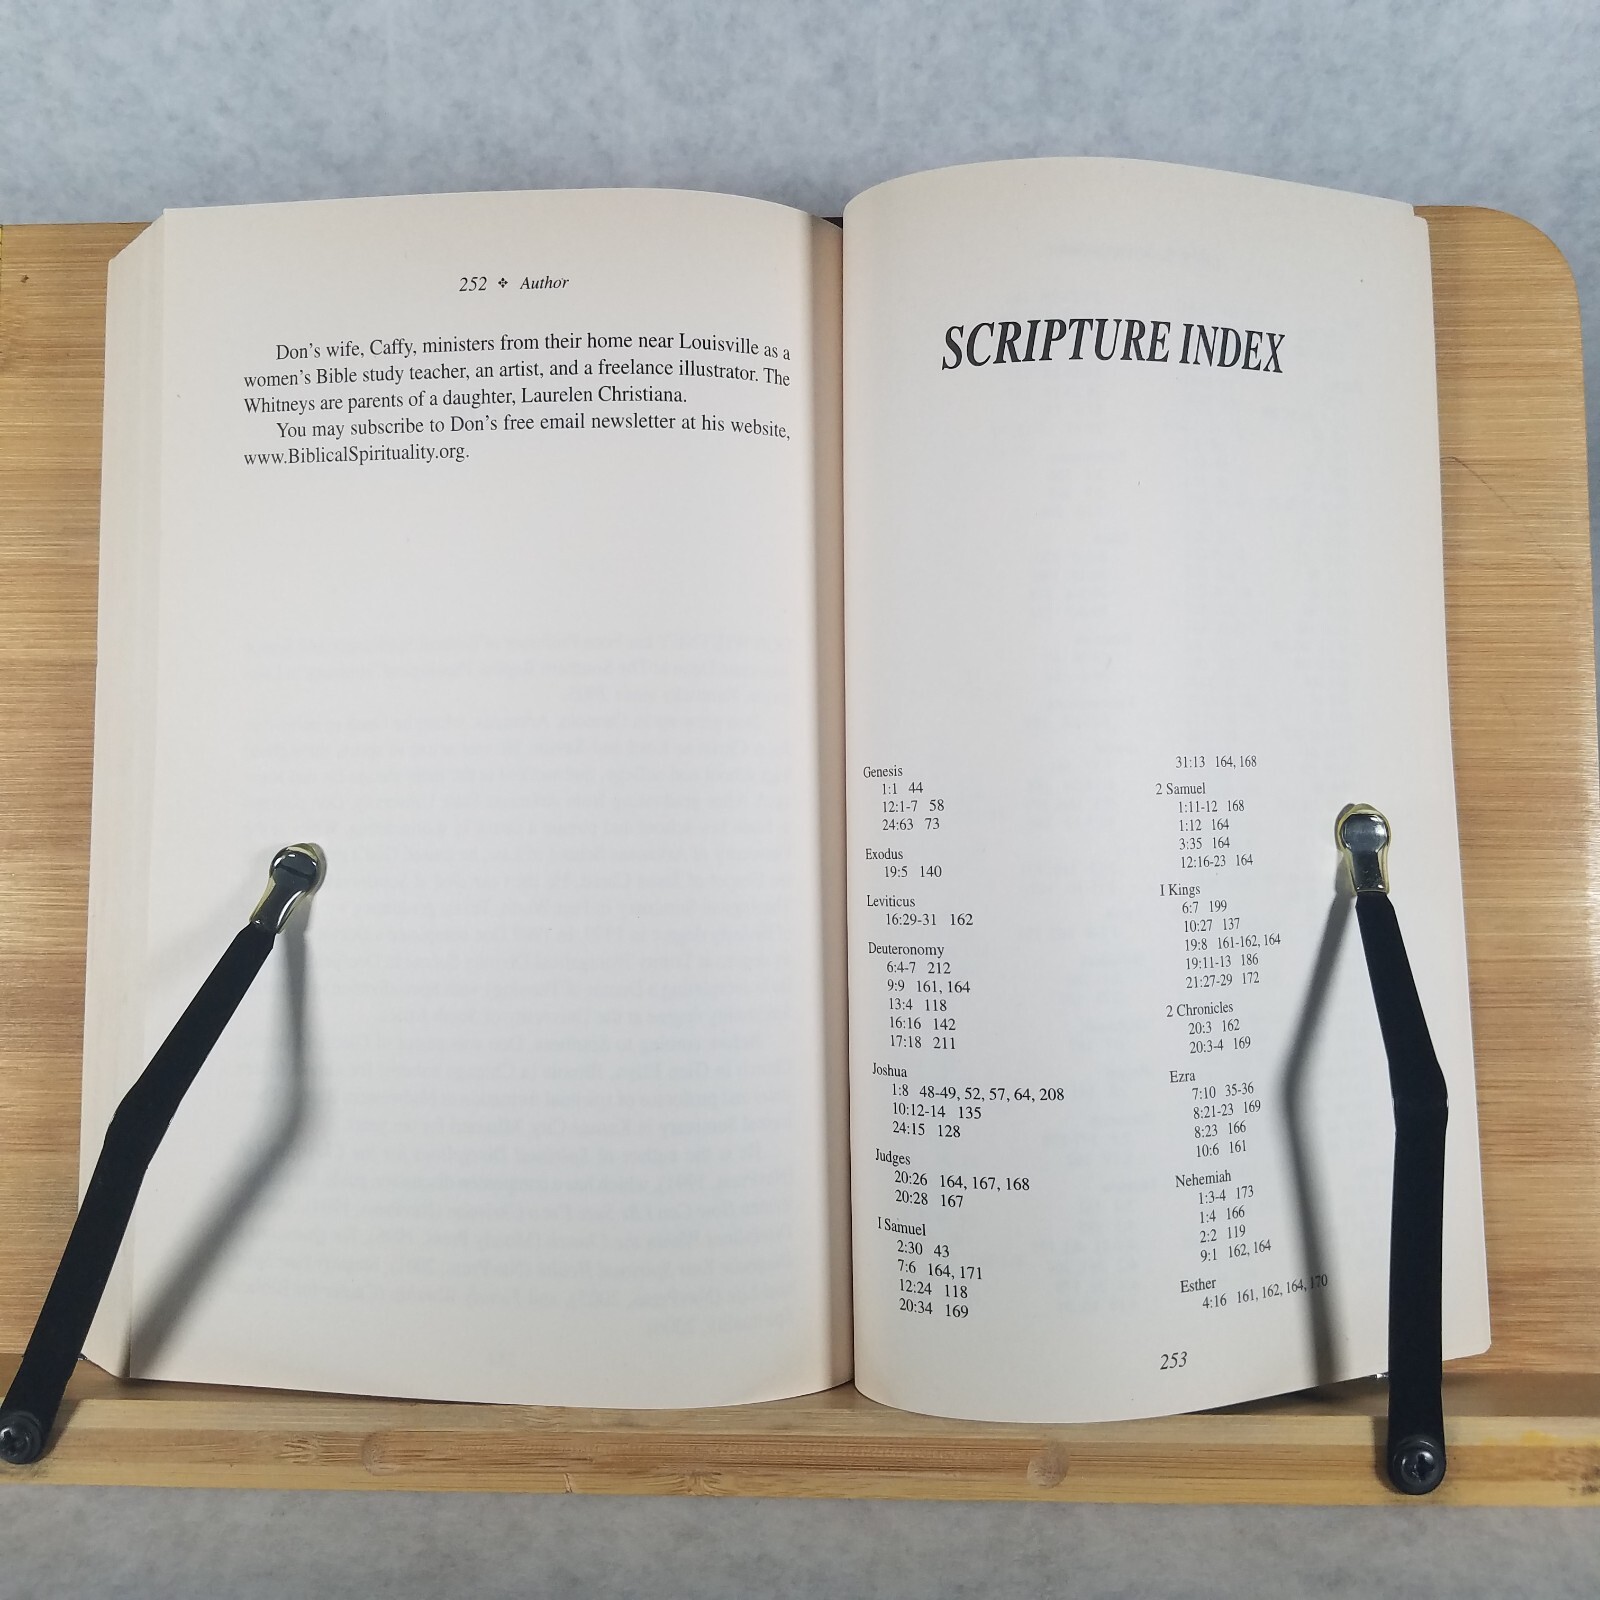 252 ❖ Author
Don's wife, Caffy, ministers from their home near Louisville as a
women's Bible study teacher, an artist, and a freelance illustrator. The
Whitneys are parents of a daughter, Laurelen Christiana.
You may subscribe to Don's free email newsletter at his website,
www.BiblicalSpirituality.org.
SCRIPTURE INDEX
Genesis
1:1 44
12:1-7 58
24:63 73
Exodus
19:5 140
Leviticus
16:29-31 162
Deuteronomy
6:4-7 212
9:9 161, 164
13:4 118
16:16 142
17:18 211
Joshua
1:8 48-49, 52, 57, 64, 208
10:12-14 135
24:15 128
Judges
20:26 164, 167, 168
20:28 167
1 Samuel
2:30 43
7:6 164, 171
12:24 118
20:34 169
31:13 164, 168
2 Samuel
1:11-12 168
1:12 164
3:35 164
12:16-23 164
1 Kings
6:7 199
10:27 137
19:8 161-162, 164
19:11-13 186
21:27-29 172
2 Chronicles
20:3 162
20:3-4 169
Ezra
7:10 35-36
8:21-23 169
8:23 166
10:6 161
Nehemiah
1:3-4 173
1:4 166
2:2 119
9:1 162, 164
Esther
4:16 161, 162, 164, 170
253